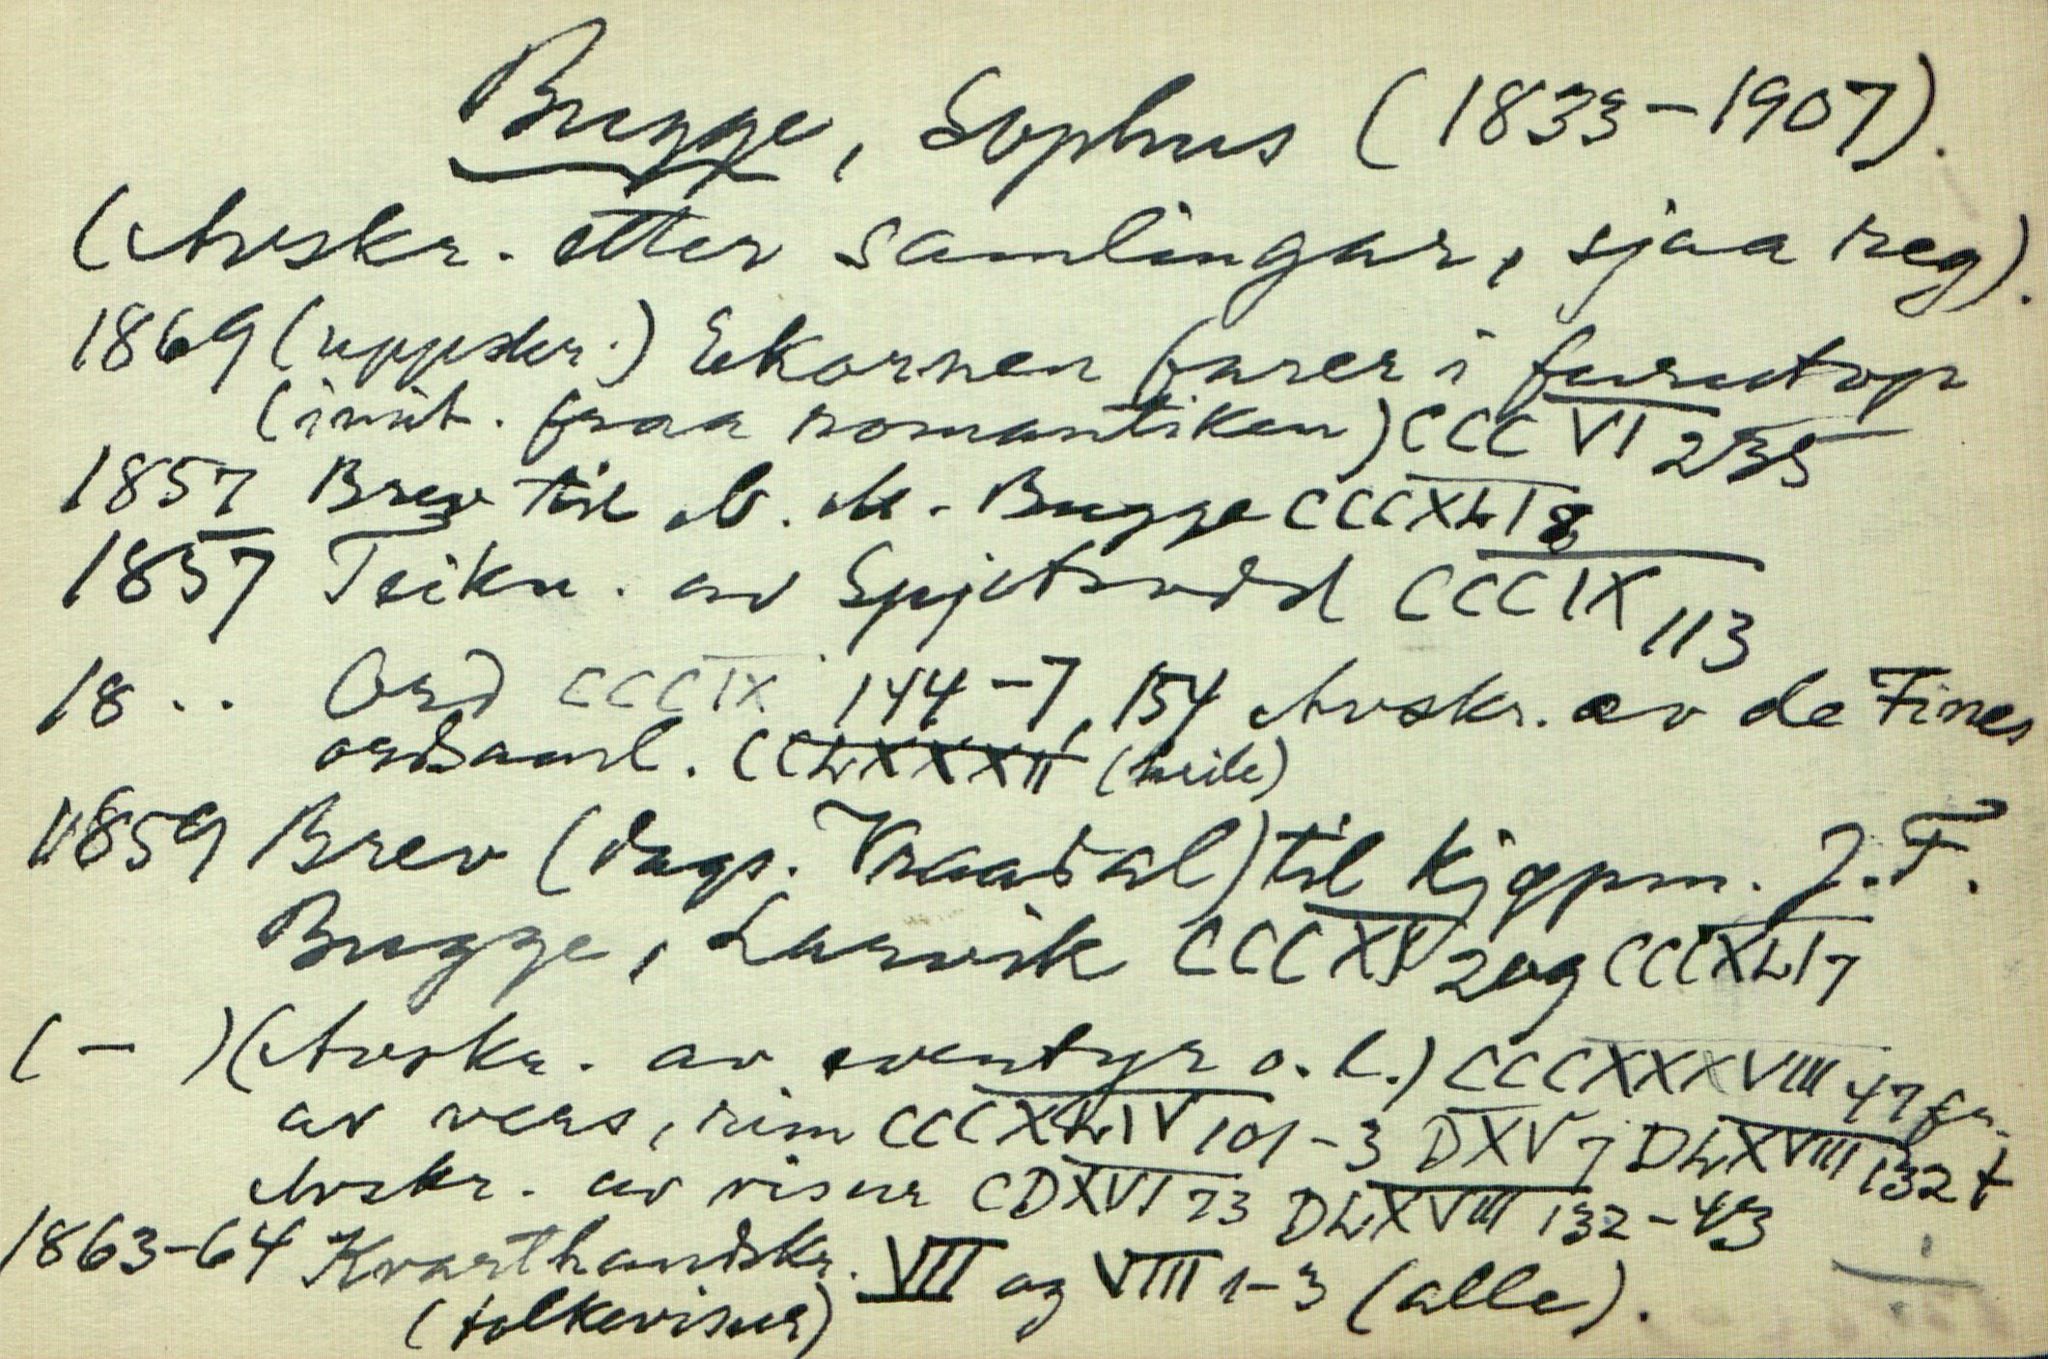 Bugge, Sophus (1833-1907).
(Avskr. etter samlingar, sjaa reg).
1869 (uppskr.) Ekornen farer i furutop
fraa romantiken) CCCVI 235
1857 Brev til M. Bugge CCCXLI 8
1857 Teikn. av Spjotsodd CCCIX 113
18 .. Ord CCCIX 144-7, 154 Avskr. av de Fines
ordsaml. CCLXXXII (heile)
1859 Brev (dags. Kraadal) til kjøpm. J. F.
Bugge, Larvik CCCXV 2 og CCCXLI 7
( - ) (Avskr. av eventyr o. l.) CCCXXXVIII 47 fr.
av vers, rim CCCXLIV 101-3 DXV 7 DLXVIII 132 f
Avskr. av visur CDXVI 73 DLXVIII 132-43
1863-64 Kvarthandskr. VII og VIII 1-3 (alle).
(folkevisur)